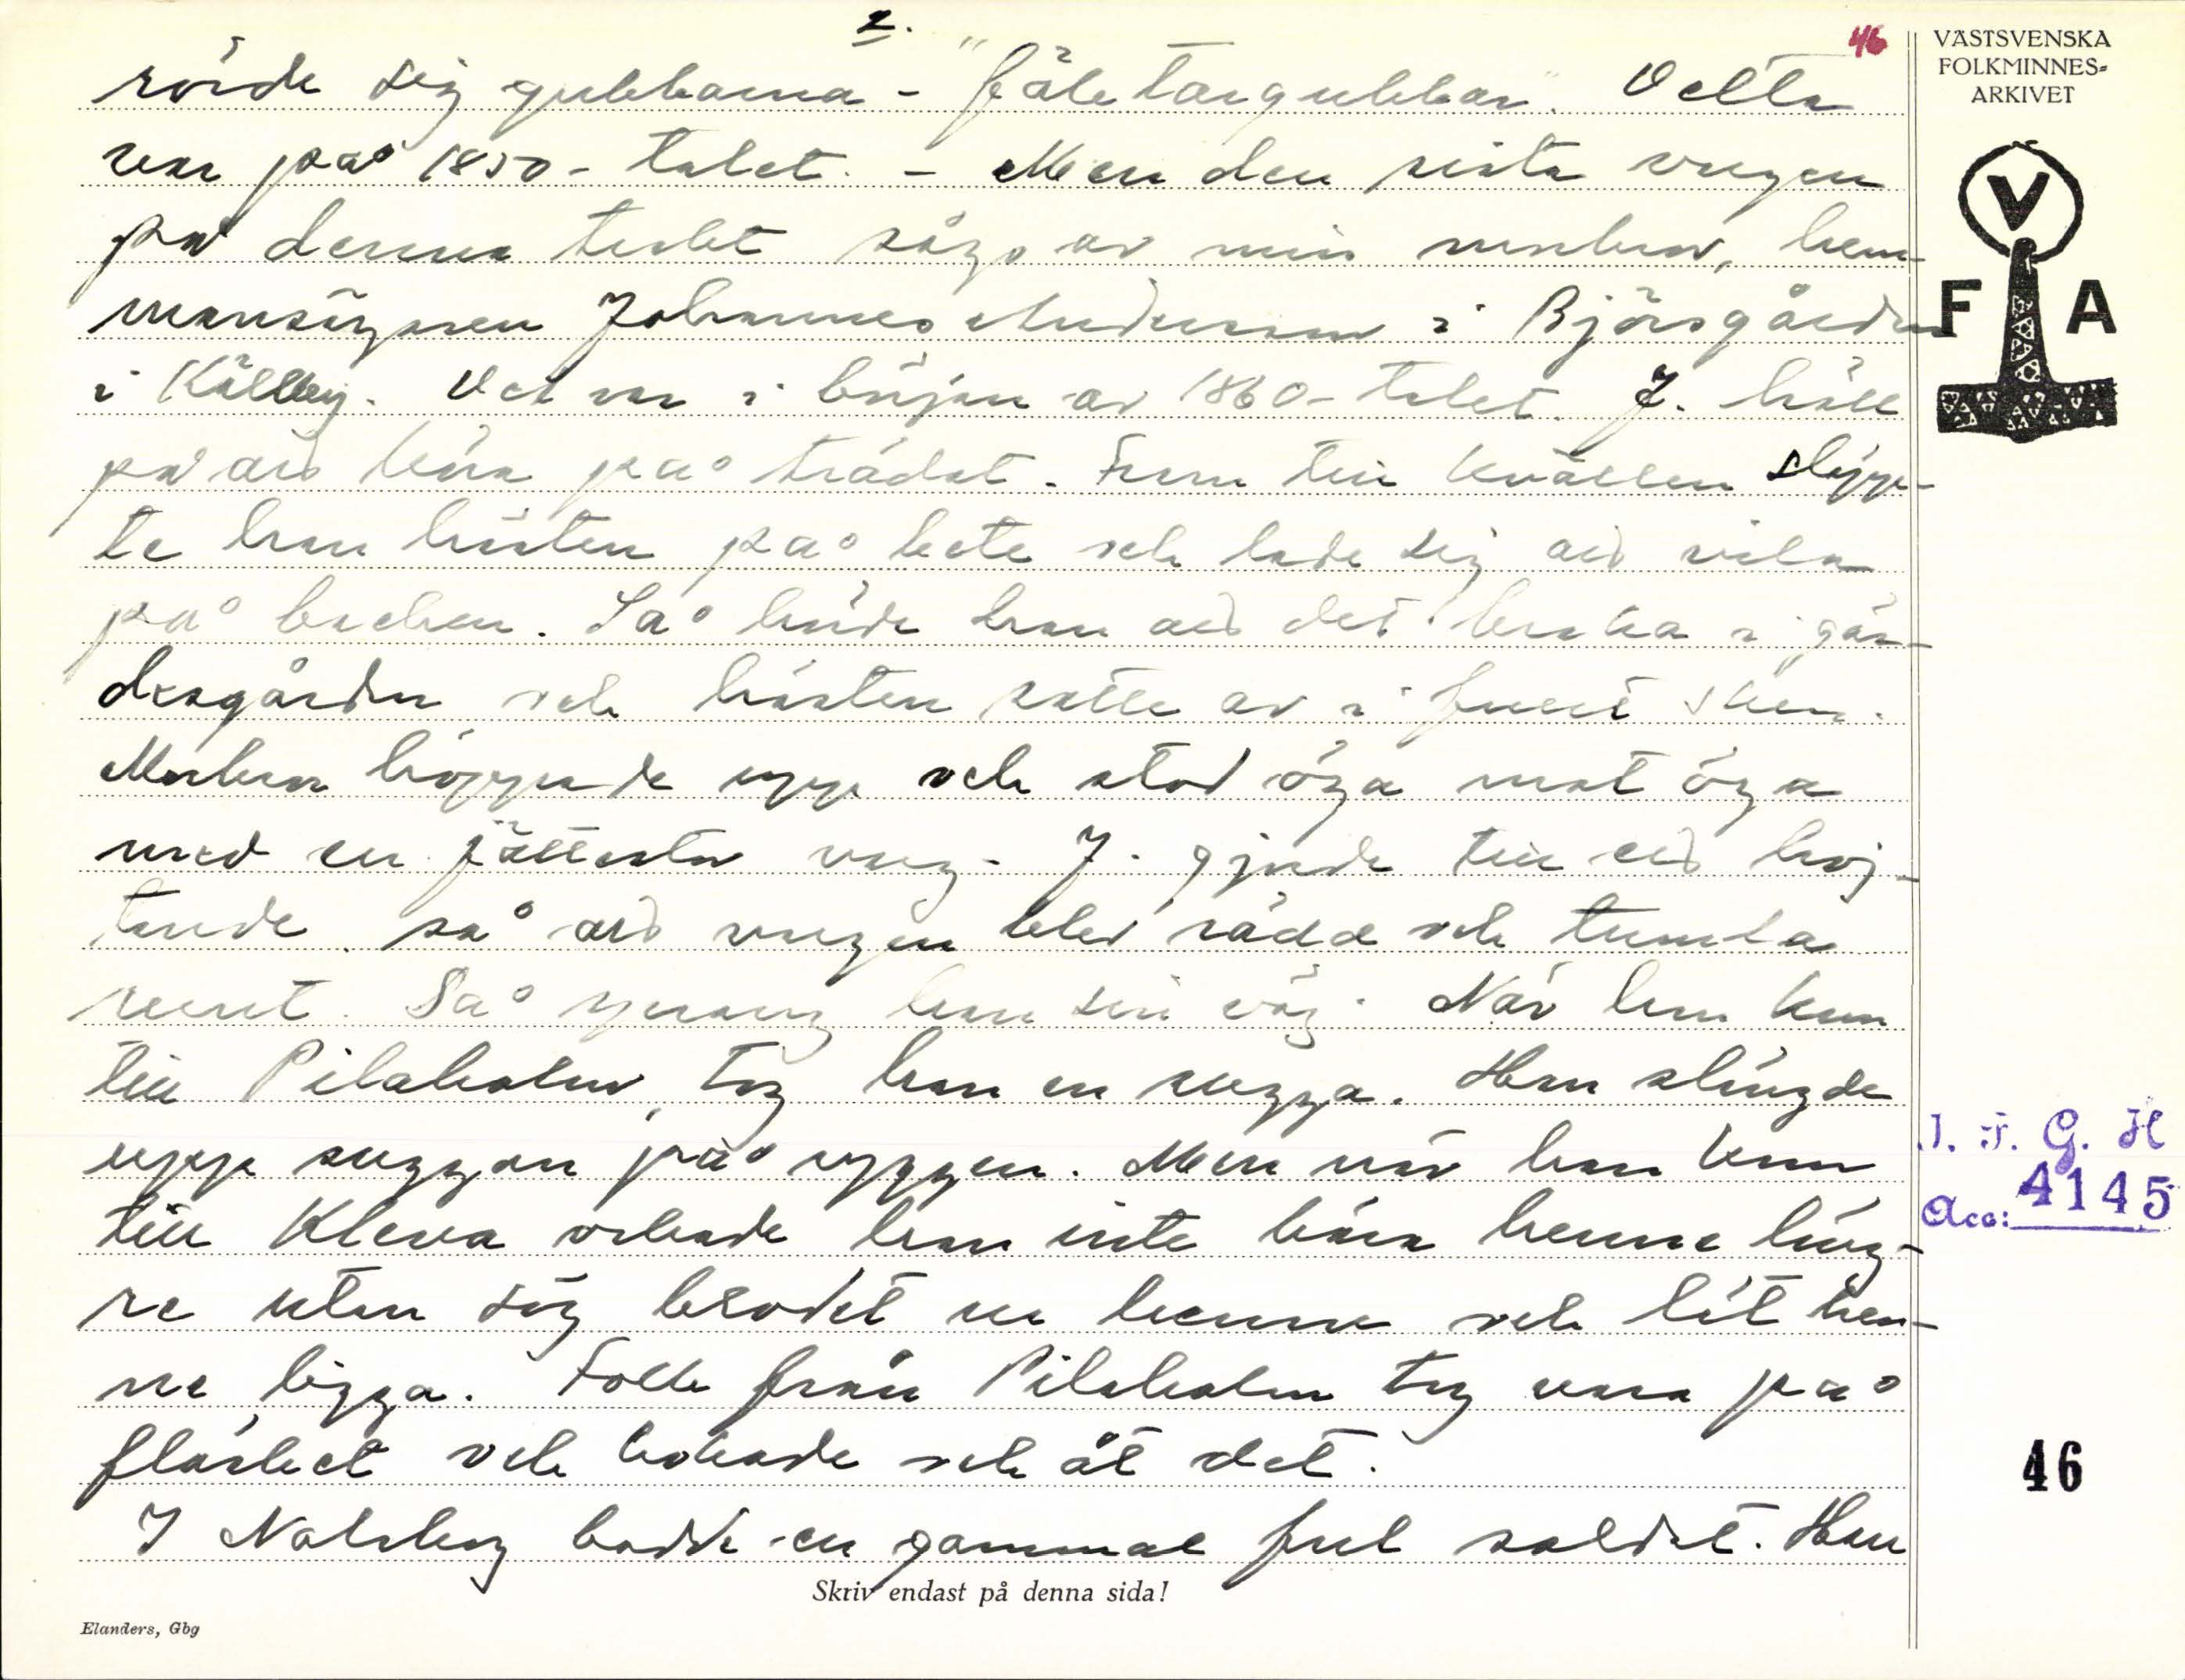 2.
46
VÄSTSVENSKA
FOLKMINNES-
ARKIVET
V
F A
rörde sig gubbarna - "fäletargubbar". Detta
var på 1850-talet. - Men den sista vargen
på denna trakt sågs av min morbror, hem-
mansägaren Johannes Andersson i Björsgården
i Källby. Det var i början av 1860-talet. J. höll
på att köra på trädat. Fram till kvällen släpp-
te han hästen på bete och lade sig att vila
på backen. Så hörde han att det braka i gär-
desgården och hästen satte av i fullt sken.
Morbror hoppade upp och stod öga mot öga
med en jättestor varg. J. gjorde till att hoj-
tade så att vargen blev rädd och tumla
runt. Så sprang han sin väg. När han kom
till Pilaholm, tog han en sugga. Han slängde
upp suggan på ryggen. Men när han kom
till Kleva orkade han inte bära henne läng-
re utan sög blodet ur henne och lät hen-
ne ligga. Folk från Pilaholm tog vara på
fläsket och kokade och åt det.
I Nolskog bodde en gammal ful soldat. Han
Skriv endast på denna sida!
Elanders, Gbg
I. F. G. H
Acc: 4145
46